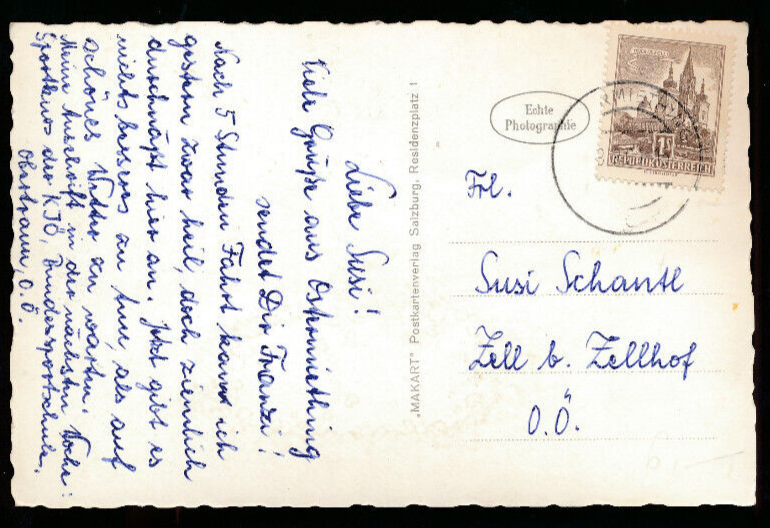 Liebe Susi!
Viele Grüße aus Ostermiething
sendet Dir Franzi!
Nach 5 Stunden Fahrt kam ich
gestern zwar heil, doch ziemlich
durchnäßt hier an. Jetzt gibt es
nichts besseres zu tun, als auf
schönes Wetter zu warten.
Meine Anschrift in der nächsten Woche:
Sportkurs der KJÖ, Bundessportschule,
Obertraun, O.Ö.
„MAKART" Postkartenverlag Salzburg, Residenzplatz 1
Echte
Photographie
REPUBLIK ÖSTERREICH
Frl.
Susi Schantl
Zell b. Zellhof
O.Ö.